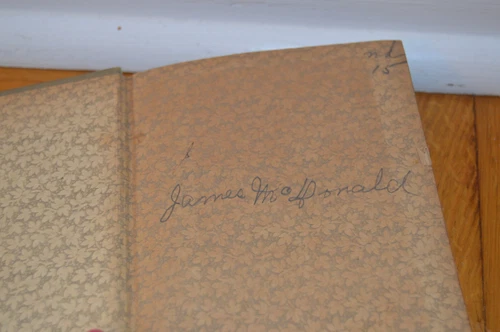 nd
15
James McDonald